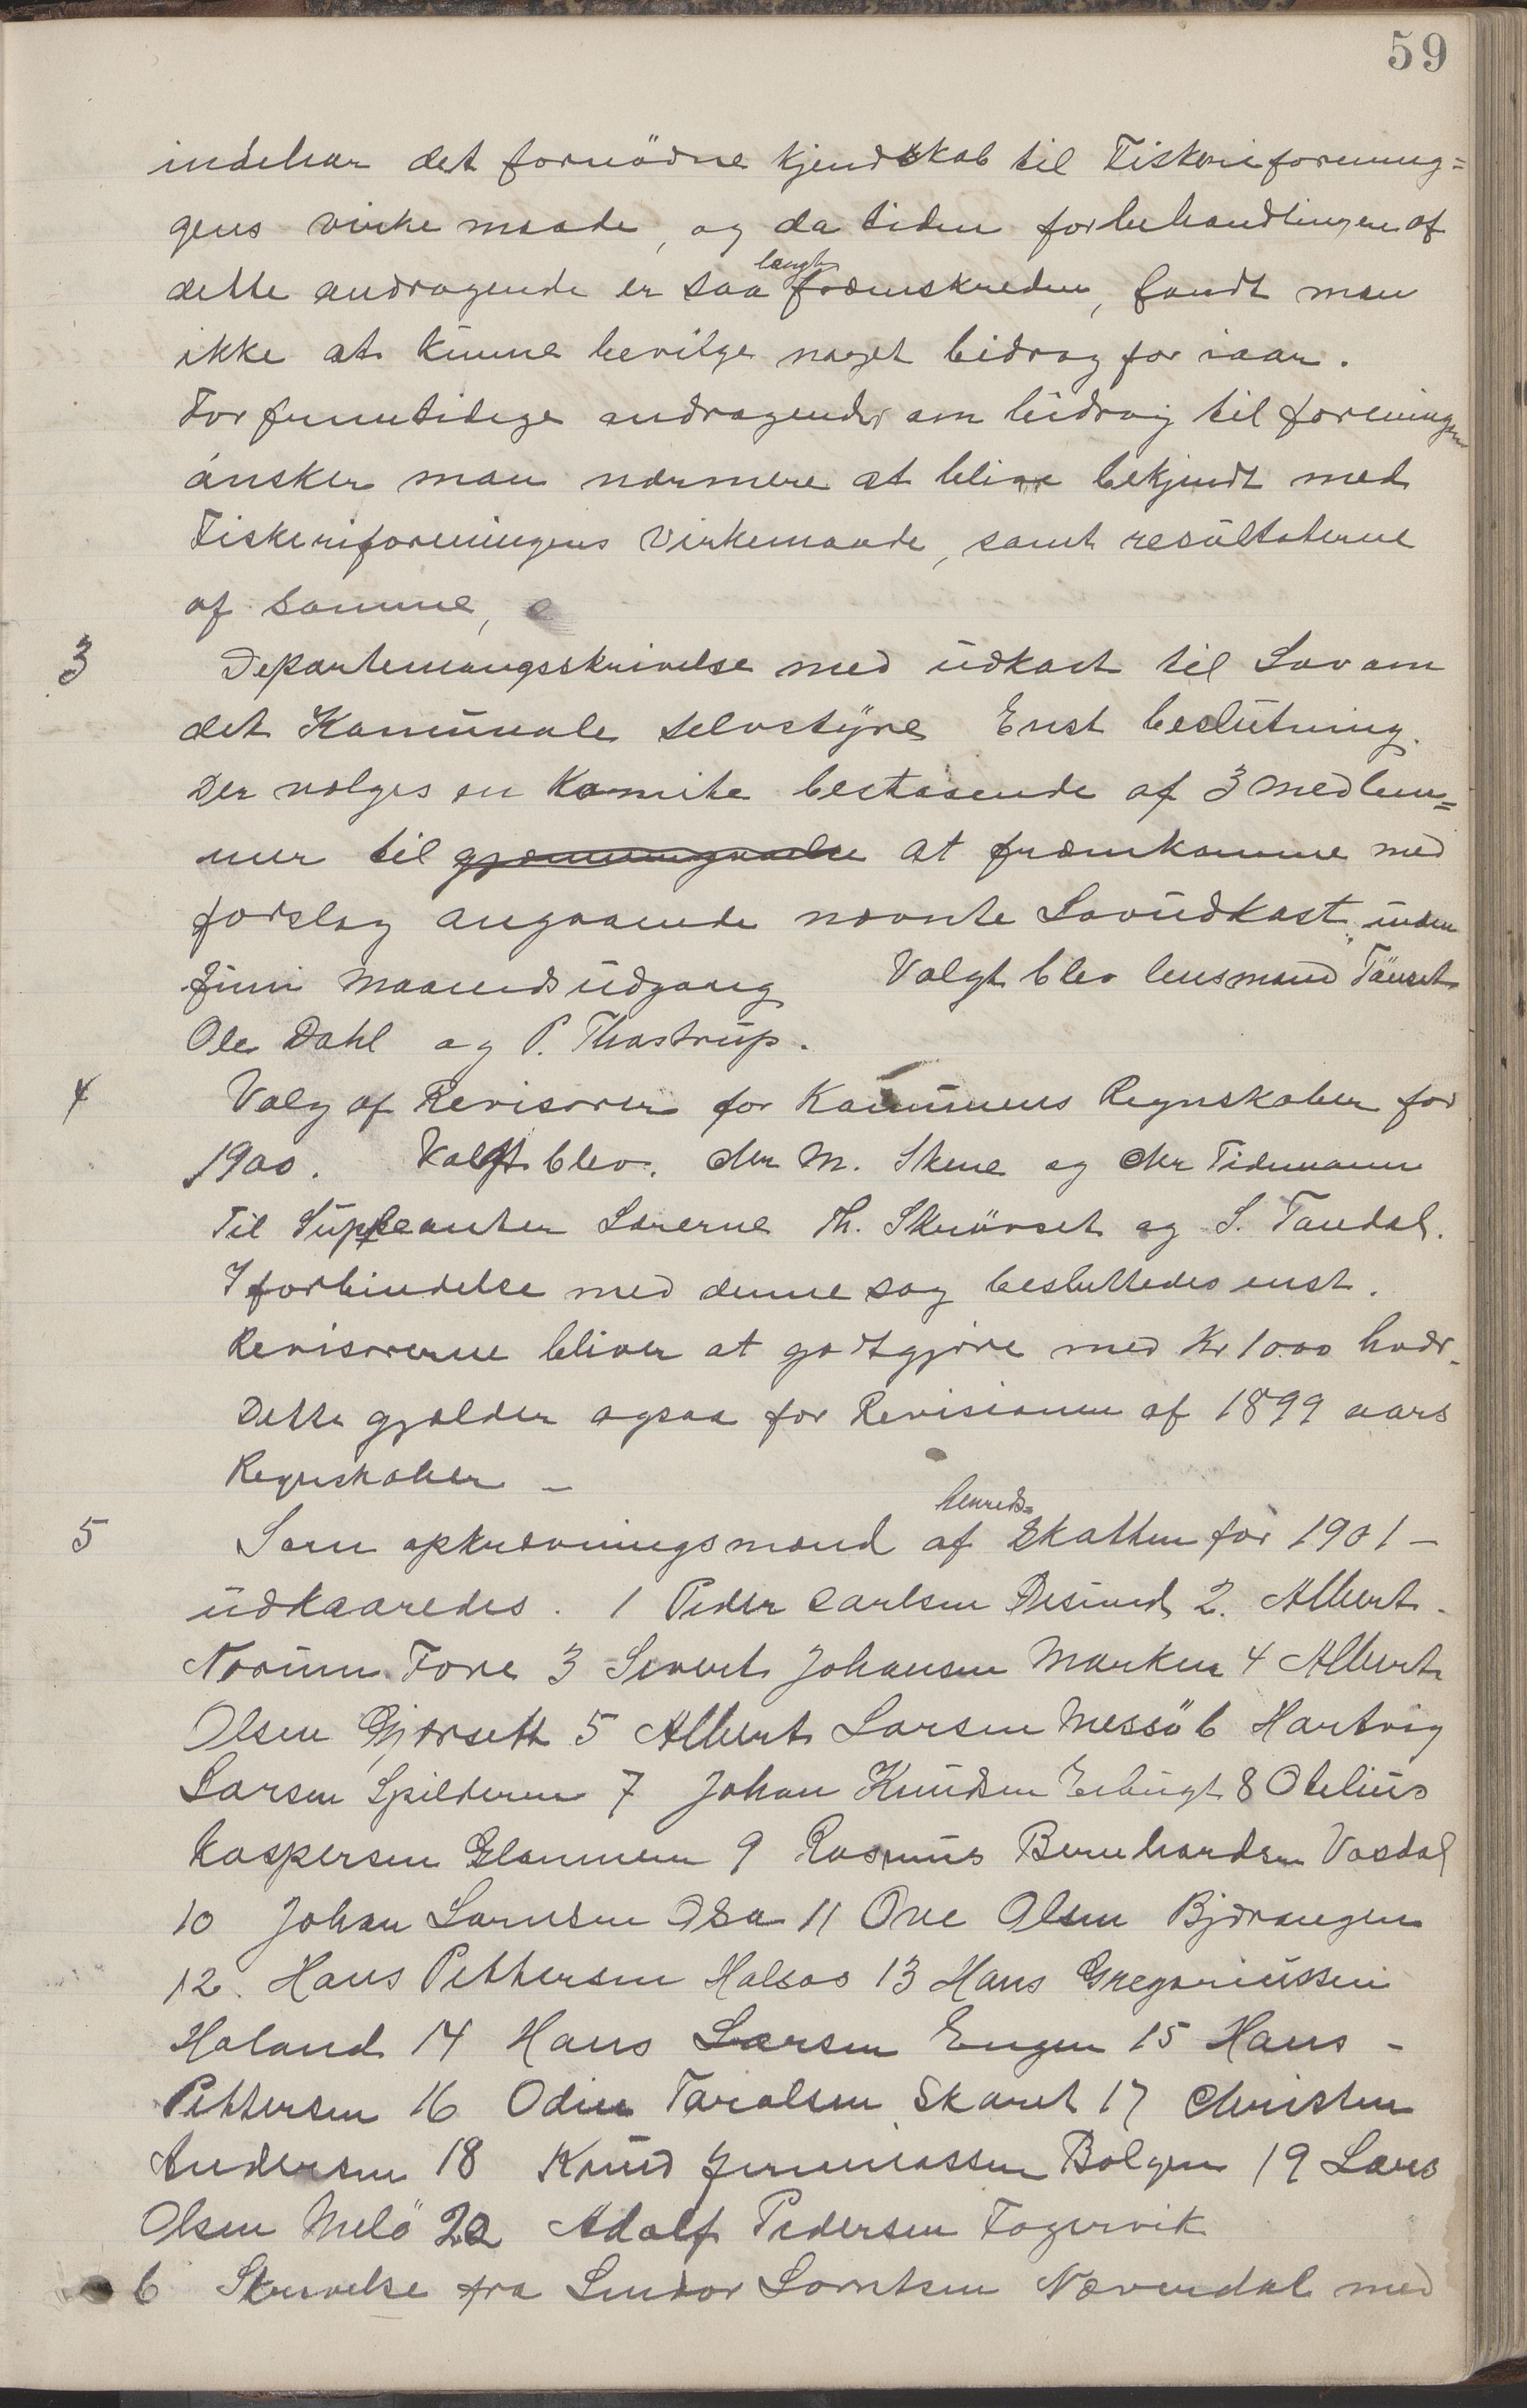 59
indehar det fornödne kjendskab til Fiskeriforening=
gens virkemaade, og da tiden for behandlingen af
dette andragende er saa langt fræmskreden, fandt man
ikke at kunne bevilge noget bidrag for iaar.
For fremtidige andragender om bidrag til foreningen
ønsker man nærmere at blive bekjendt med
Fiskeriforeningens Virkemaade, samt resultaterne
af samme,
3 Departemangsskrivelse med udkast til Lov om
det Kommunale selvstyre Enst beslutning.
Der vælges en Komite bestaaende af 3 medlem=
mer til at fræmkomme med
forslag angaaende nævnte Lovudkast inden
Juni Maaneds udgang Valgt blev lensmand
Ole Dahl og P. Thastrup.
4 Valg af Revisorer for Kommunens Regnskaber for
1900. Valgt blev. Chr M. Skene og Chr Tidemann
Til Supleanter Lærerne Th. Skrövset og S. Tandal.
I forbindelse med denne sag besluttedes enst.
Revisorerne bliver at godtgjöre med Kr 10.00 hver.
Dette gjælder ogsaa for Revisionen af 1899 aars
Regnskaber –
5 Som opkrævningsmænd af herreds= Skatten for 1901 –
udkaaredes. 1 Peder Carlsen 2. Albert
Norum Fore 3 Sivert Johansen Marken 4 Albert
Olsen Gjærsett 5 Albert Larsen Messö 6 Hartvig
Larsen Spilderen 7 Johan Knudsen Esbugt 8 Otelius
Kaspersen Glammen 9 Rasmus Bernhardsen Vasdal
10 Johan Larnsen Osa 11 Ove Olsen Bjærangen
12. Hans Pettersen Halsos 13 Hans Gregoriussen
Haland 14 Hans Larsen Engen 15 Hans –
Pettersen 16 Odin Taralsen Skaret 17 Christen
Andersen 18 Knud Jermiassen Bolgen 19 Lars
Olsen Melö 20 Adolf Pedersen Fagervik
6 Skrivelse fra Sendor Lorntsen Nævendal med